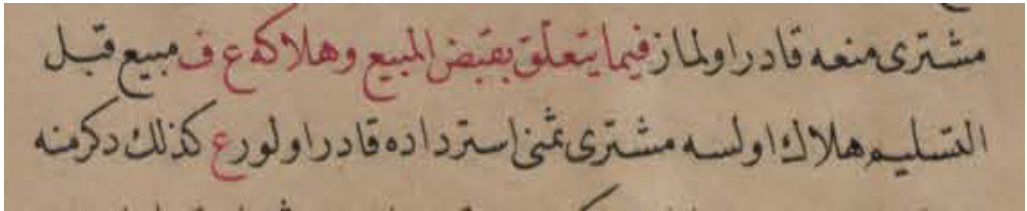 مشتری منعه قادر اولماز فیما یتعلق بقبض المبیع وهلاكه ع ف مبیع قبل
التسلیم هلاك اولسه مشتری ثمنی استرداده قادر اولور ع كذلك دكرمنه